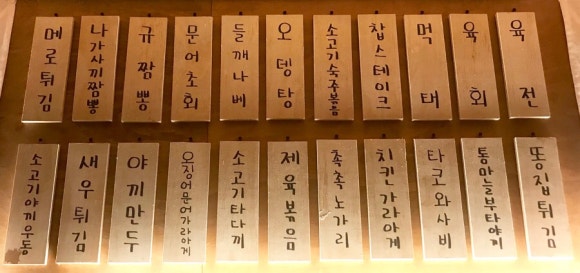 메로튀김
나가사끼짬뽕
규짬뽕
문어초회
들깨나베
오뎅탕
소고기숙주볶음
찹스테이크
먹태
육회
육전
소고기야끼우동
새우튀김
야끼만두
오징어문어가라아게
소고기타다끼
제육볶음
촉촉노가리
치킨가라아게
타코와사비
통마늘부타야끼
똥집튀김